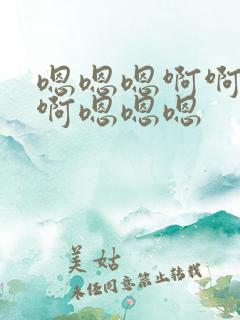 嗯嗯嗯啊啊
啊嗯嗯嗯
美姑
未经同意禁止转载